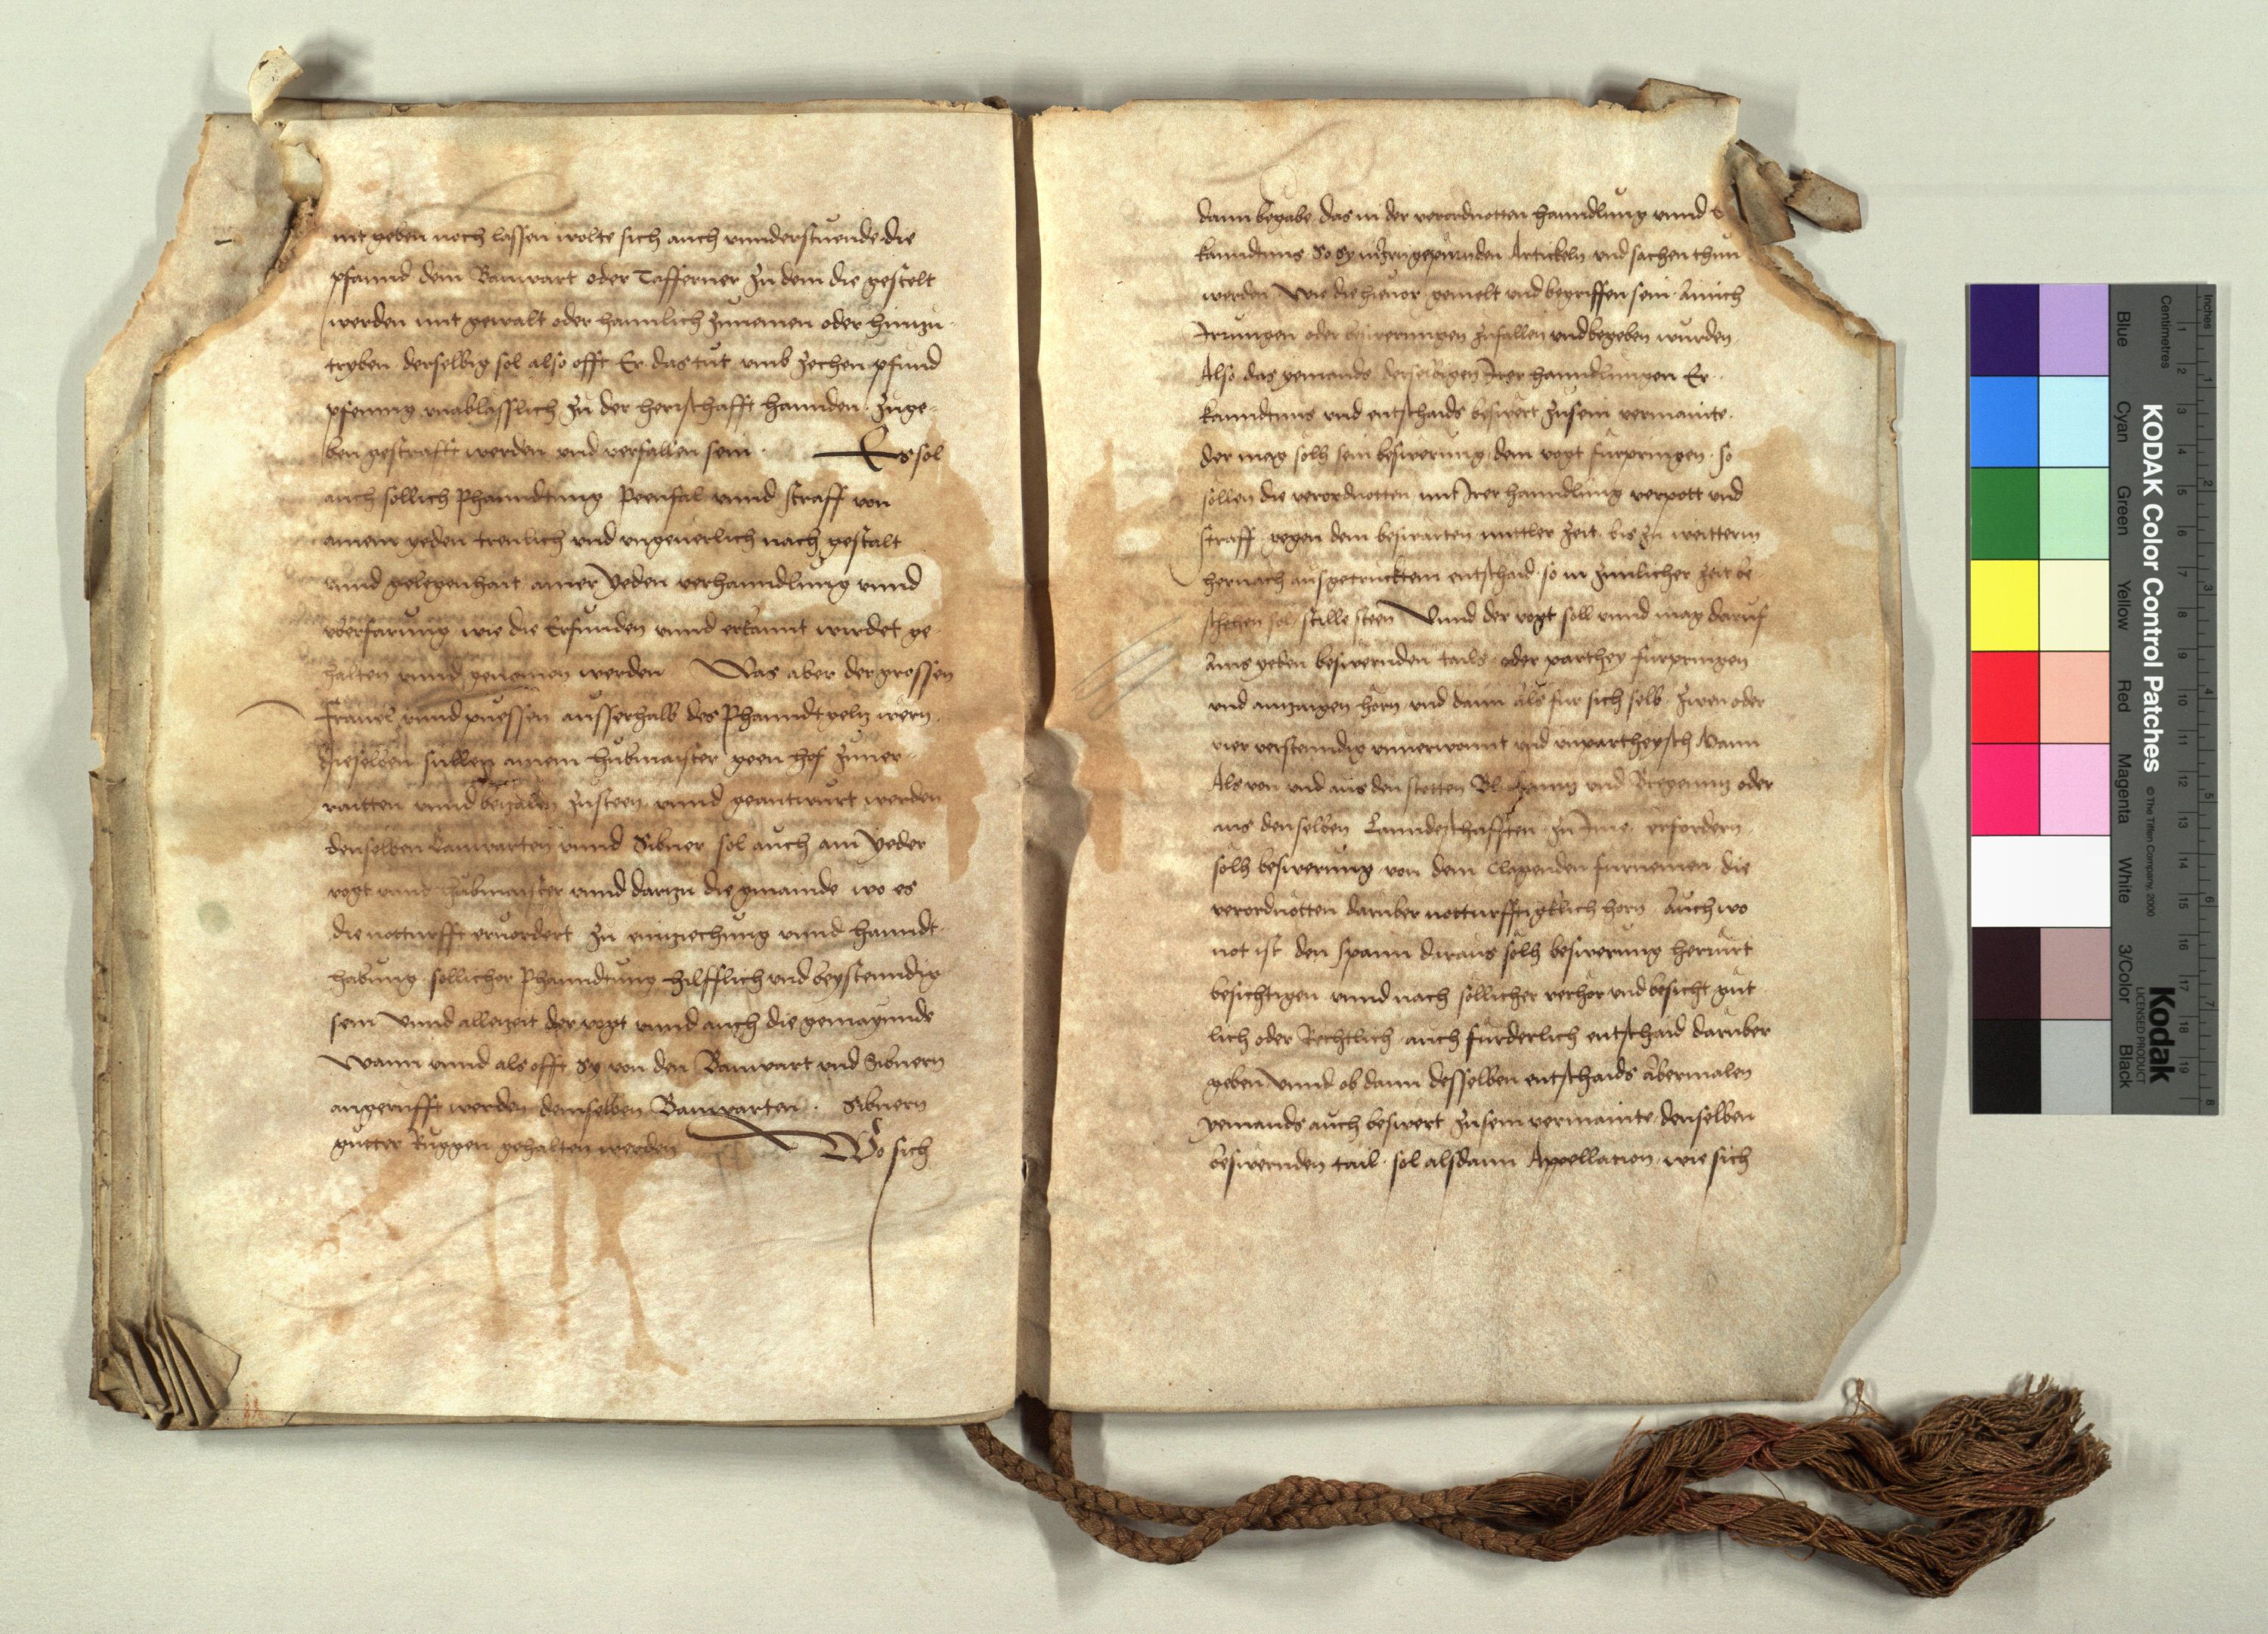 nit geben noch lassen wolte sich auch vnnderstuende die
pfannd dem Banwart oder Tafferner zu dem die gestelt
werden mit gewalt oder haimlich zunemen oder hinzu-
tryben derselbig sol also offt Er das tut vmb zechen pfund
pfening vnablasslich zu der herrschafft hannden zuge-
ben gestrafft werden vnd verfallen sein. Es sol
auch sollich Phanndtung Peenfal vnnd straff von
ainem yeden treulich vnd vngeuerlich nach gestalt
vnnd gelegenhait ainer yeden verhanndlung vnnd
vberfarung wie die Erfunden vnnd erkannt wirdet ge-
halten vnnd genomen werden Was aber der grossen
Fräuel vnnd puessen ausserhalb des Phanndtgeltz wern
dieselben sullen ainem hubmaister geen hof zuuer-
raitten vnnd bezalen zusteen vnnd geantwurt werden
denselben Banwarten vnnd Sibner sol auch ain yeder
vogt vnnd hubmaister vnnd darzu die gmainde wo es
die notturfft eruordert zu einziechung vnnd hanndt-
habung sollicher Phanndtung hilfflich vnd beystenndig
sein Vnnd allezeit der vogt vnnd auch die gemaynde
Wann vnnd als offt Sy von den Banwart vnd Sibnern
angerufft werden demselben Banwarten. Sibnern
gutter Ruggen gehalten werden Wo sich
dann begabe das in der verordnotten hanndlung vnnd
kanndtnus So Sy in Irn gepurnden Artickeln vnd sachen thun
werden Wie die hieuor gemelt vnd begriffen sein Ainich
Irrungen oder beswerungen zufallen vnd begeben wurden
Also das yemands derselbigen Irer hanndlungen Er-
kanndtnus vnd entschaids beswert zusein vermainte.
Der mag solh sein beswerung dem vogt furpringen. so
sollen die verordnotten mit Irer hanndlung verpott vnd
straff gegen dem beswarten mittler zeit bis zu weitterm
hernach ausgetrucktem entschaid so in zimlicher zeit be-
schehen sol stille steen Vnnd der vogt soll vnnd mag daruf
Ains yeden beswernden tails oder parthey furpringen
vnd anzaigen horn vnd dann als fur sich selb zwen oder
vier verstenndig vnuerwannt vnd vnpartheysch Mann
Als von vnd aus den stetten Bludentz vnd Bregenntz oder
aus denselben Lanndtschafften zu Ime erfordern
solh beswerung von dem Clagenden furnemen die
verordnotten daruber notturfftigklich horn Auch wo
not ist den Spann daraus solh beswerung herrurt
besichtigen vnnd nach sollicher verhor vnd besicht gut-
lich oder Rechtlich auch furderlich entschaid daruber
geben Vnnd ob dann desselben entschaids abermalen
yemands auch beswert zusein vermainte denselben
beswernden tail sol alsdann Appellation wie sich
KODAK Color Control Patches
© The Tiffen Company, 2000
Kodak
LICENSED PRODUCT
Inches
Centimetres
Blue
Cyan
Green
Yellow
Red
Magenta
White
3/Color
Black